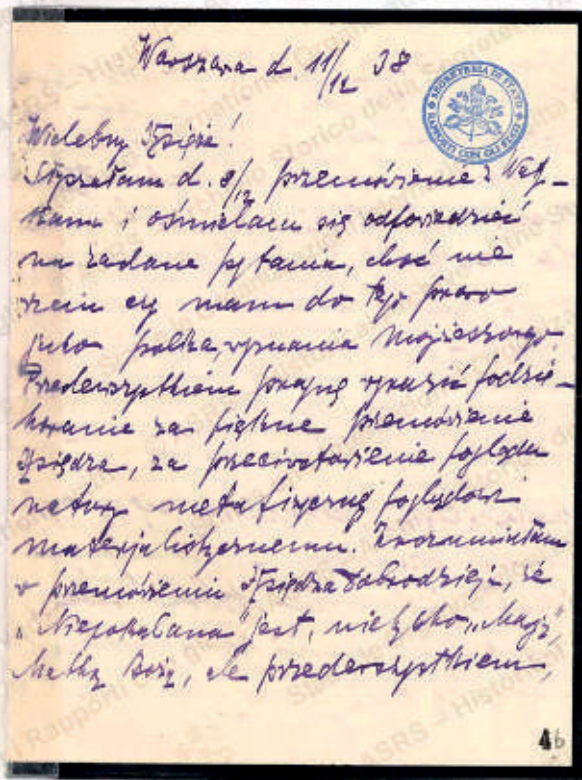 Warszawa d. 11/12 38
SEGRETERIA DI STATO
RAPPORTI CON GLI STATI
Wielebny Księże!
Słyszałam d. 8/12 przemówienie z Waty-
kanu i ośmielam się odpowiedzieć
na zadane pytania, choć nie
wiem czy mam do tego prawo
jako polka, wyznania mojżeszowego.
Przedewszystkiem pragnę wyrazić podzię-
kowanie za piękne przemówienie
Księdza, za przeciwstawienie poglądu
natury metafizycznej poglądowi
materjalistycznemu. Zrozumiałam
w przemówieniu Księdza Dobrodzieja, że
"Niepokalana" jest, nietylko
Matką Bożą, ale przedewszystkiem,
46